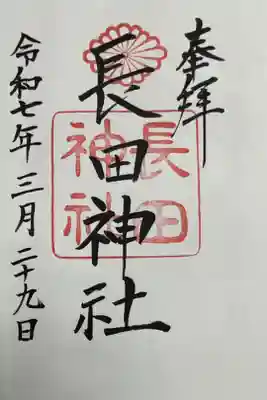 奉拝
長田神社
長田
神社
令和七年三月二十九日